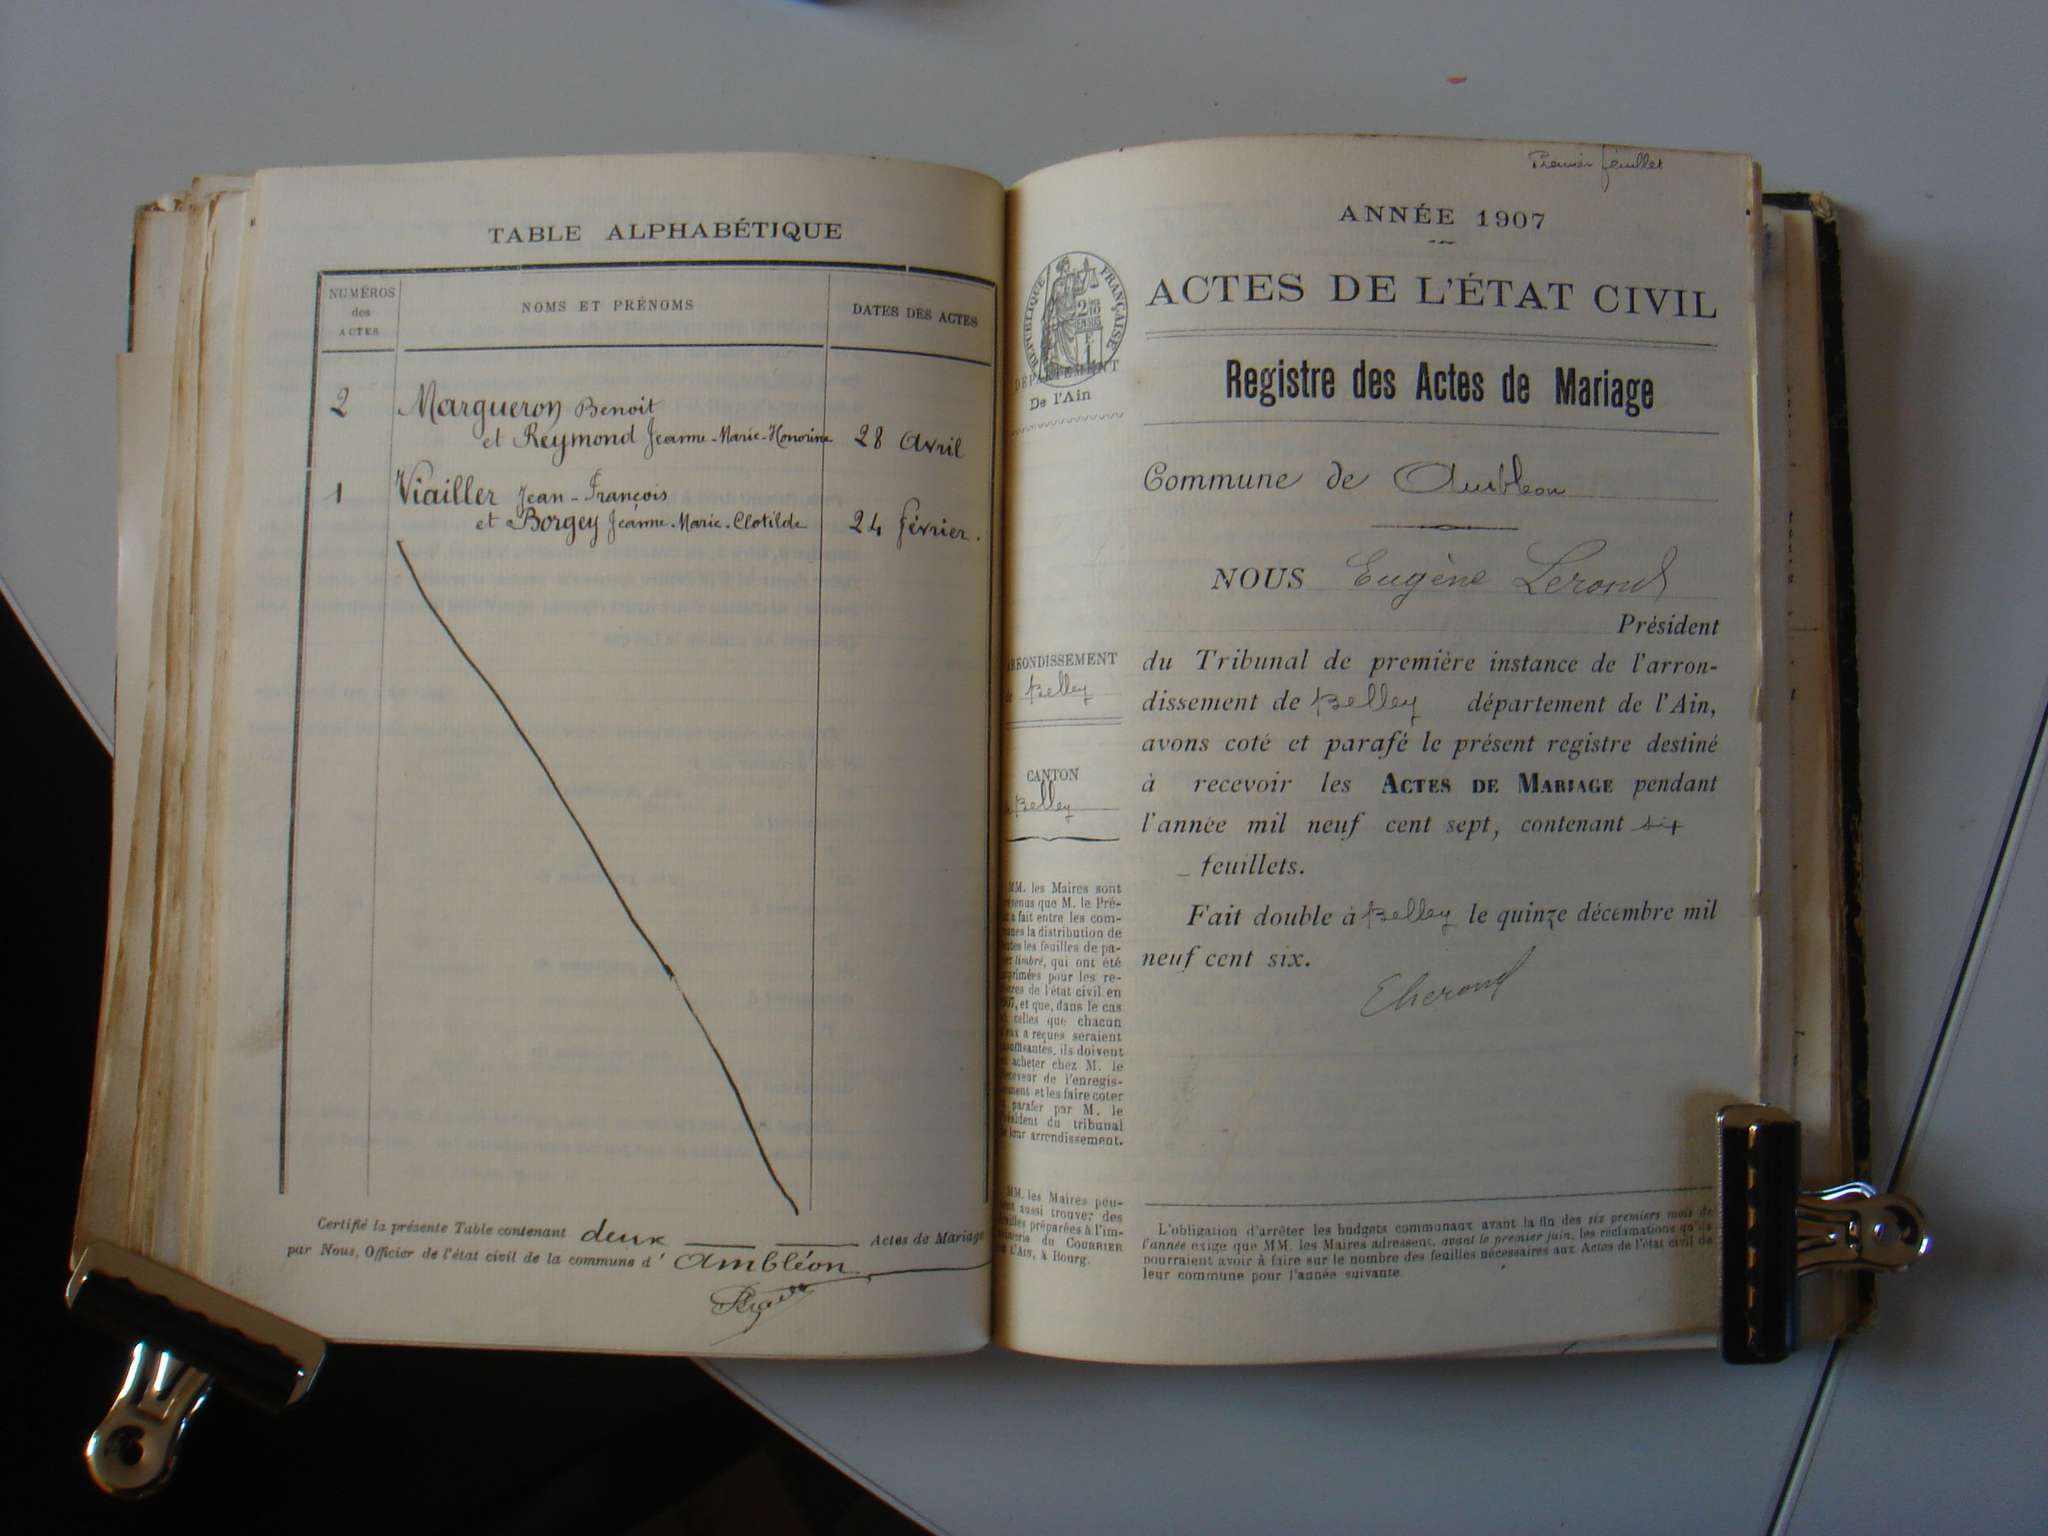 TABLE ALPHABÉTIQUE
NUMÉROS
des
ACTES
NOMS ET PRÉNOMS
DATES DES ACTES
2 Margueron Benoit
et Reymond Jeanne-Marie-Honorine 28 Avril
1 Viailler Jean-François
et Borgey Jeanne-Marie-Clotilde 24 février.
Certifié la présente Table contenant deux Actes de Mariage
par Nous, Officier de l'état civil de la commune d' Ambléon
Premier feuillet
ANNÉE 1907
RÉPUBLIQUE FRANÇAISE
2
DÉPARTEMENT
De l'Ain
ACTES DE L'ÉTAT CIVIL
Registre des Actes de Mariage
Commune de Ambléon
NOUS Eugène Lerond
Président
du Tribunal de première instance de l'arron-
dissement de Belley département de l'Ain,
avons coté et parafé le présent registre destiné
à recevoir les ACTES DE MARIAGE pendant
l'année mil neuf cent sept, contenant six
feuillets.
Fait double à Belley le quinze décembre mil
neuf cent six.
ELerond
RRONDISSEMENT
Belley
CANTON
Belley
MM. les Maires sont
venus que M. le Pré-
a fait entre les com-
munes la distribution de
les feuilles de pa-
timbré, qui ont été
primées pour les re-
tres de l'état civil en
07, et que, dans le cas
celles que chacun
eux a reçues seraient
suffisantes, ils doivent
acheter chez M. le
ceveur de l'enregis-
ement et les faire coter
parafer par M. le
ésident du tribunal
leur arrondissement.
MM. les Maires peu-
nt aussi trouver des
uilles préparées à l'im-
imerie du COURRIER
DE L'AIN, à Bourg.
L'obligation d'arrêter les budgets communaux avant la fin des six premiers mois de
l'année exige que MM. les Maires adressent, avant le premier juin, les réclamations qu'ils
pourraient avoir à faire sur le nombre des feuilles nécessaires aux Actes de l'état civil de
leur commune pour l'année suivante